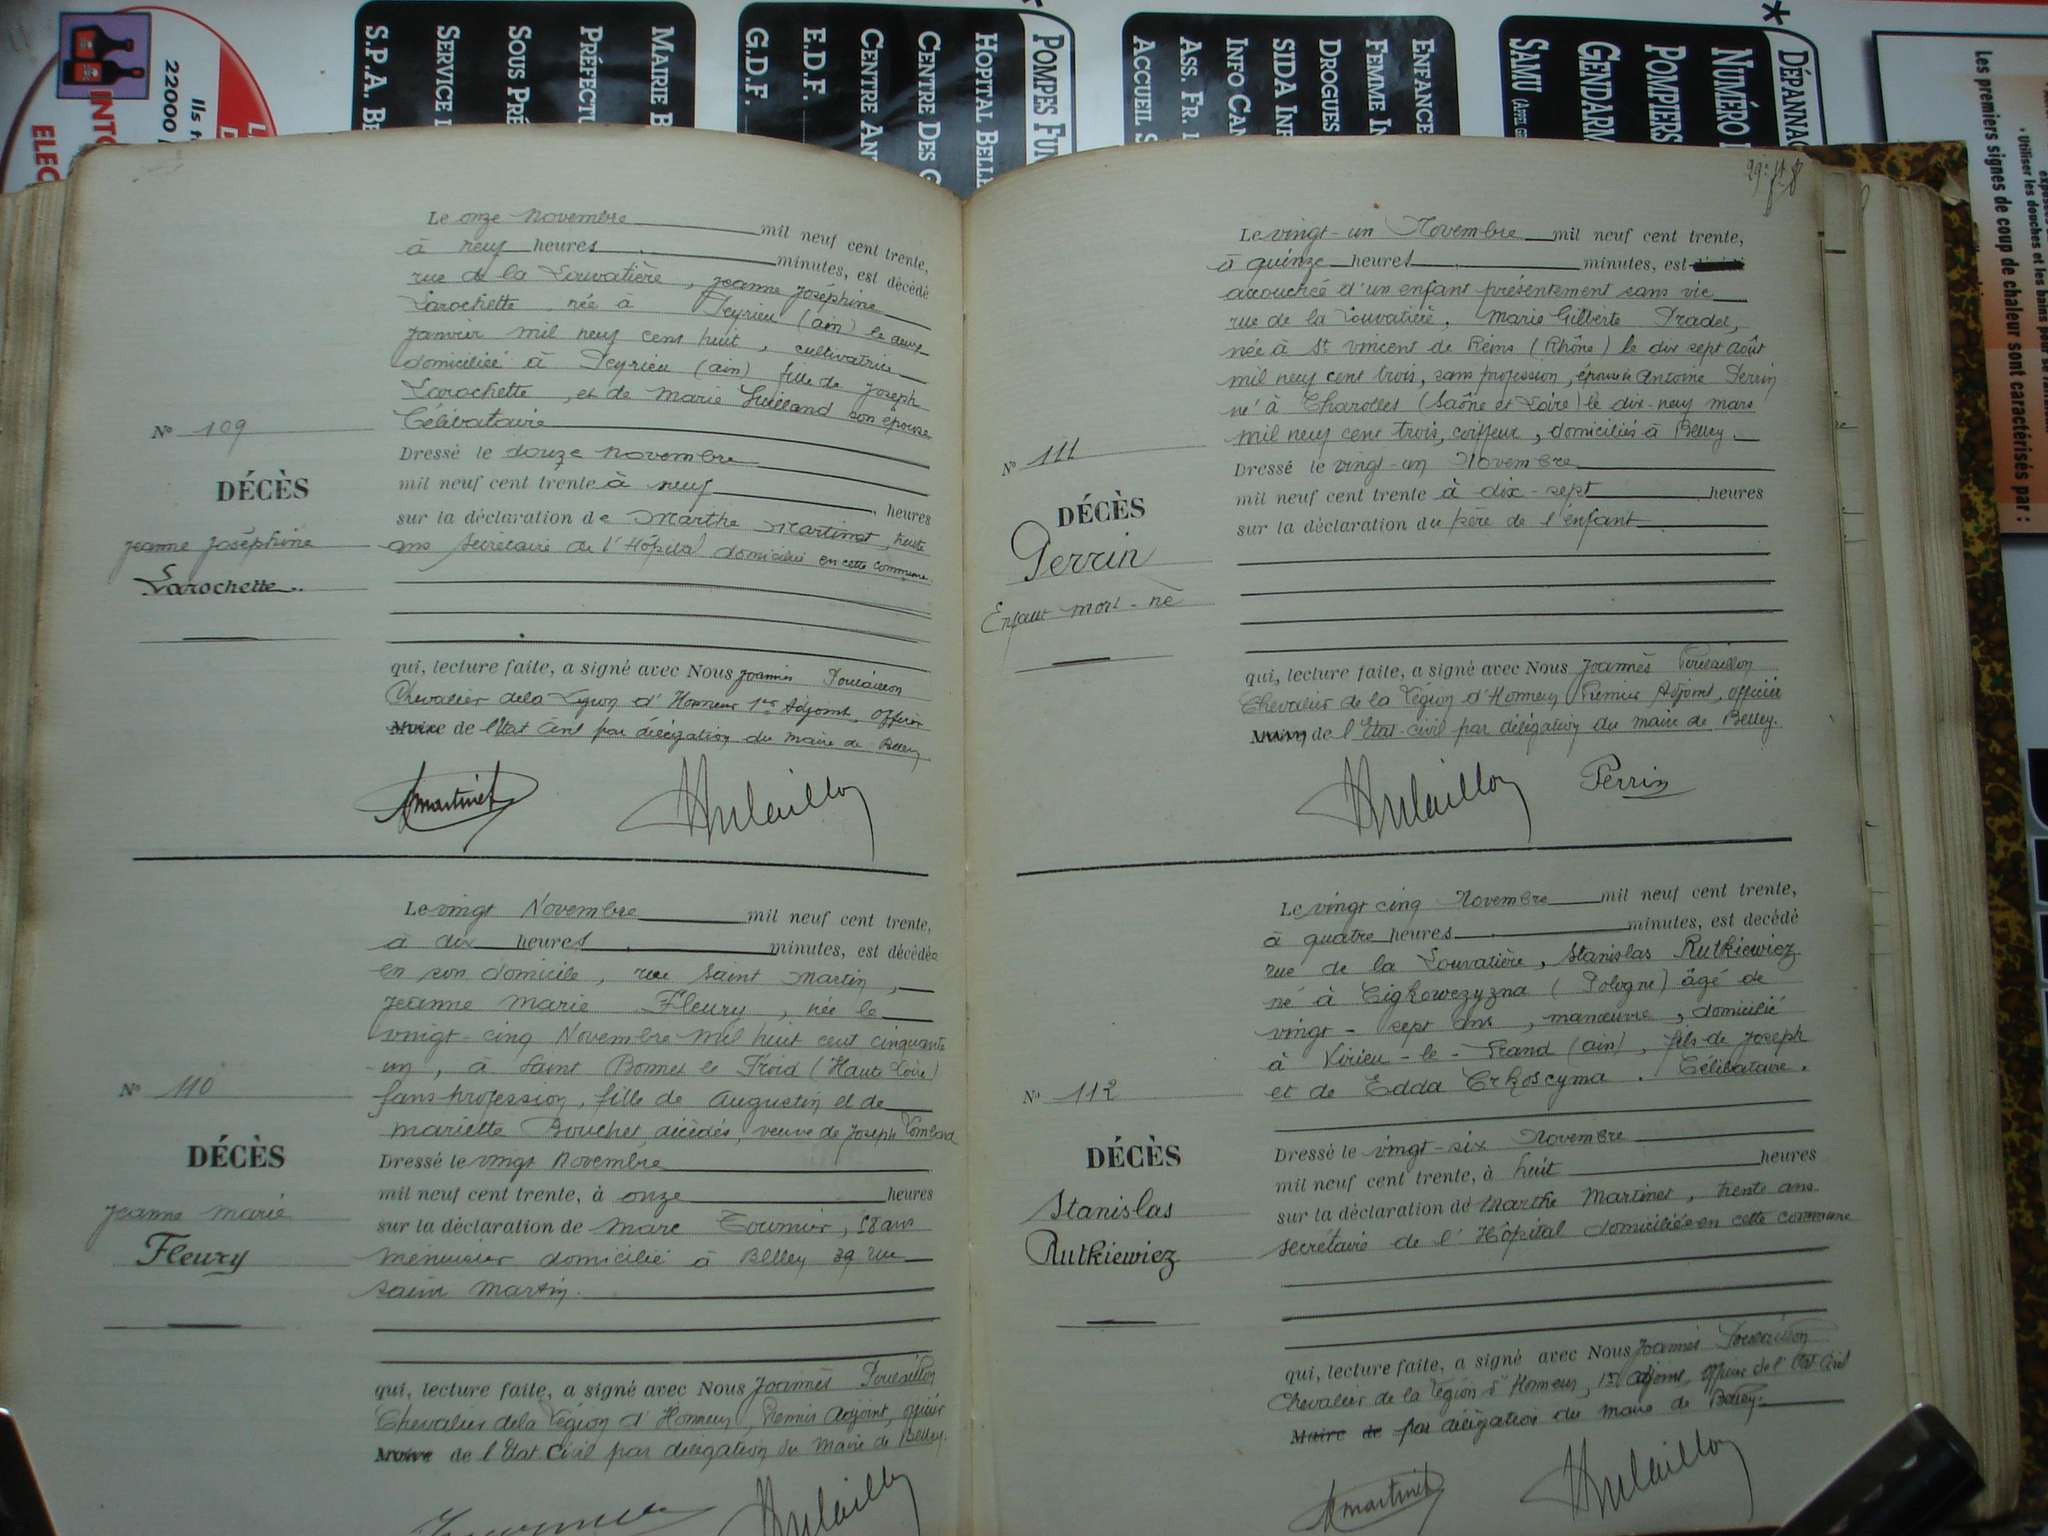 Le onze novembre mil neuf cent trente,
à neuf heures minutes, est décédé
rue de la Louvatière, Jeanne Joséphine
Larochette, née à Peyrieu (ain) le deux
janvier mil neuf cent huit, cultivatrice
domiciliée à Peyrieu (ain) fille de Joseph
Larochette, et de Marie Guilland son épouse
Célibataire
Dressé le douze novembre
mil neuf cent trente à neuf heures
sur la déclaration de Marthe Martinet, trente
ans secrétaire de l'Hôpital domiciliée en cette commune
N° 109
DÉCÈS
Jeanne Joséphine
Larochette
qui, lecture faite, a signé avec Nous Joannès Poulaillon
Chevalier de la Légion d'Honneur 1er Adjoint, officier
Maire de l'Etat Civil par délégation du maire de Belley
Martinet Poulaillon
Le vingt Novembre mil neuf cent trente,
à dix heures minutes, est décédée
en son domicile, rue Saint Martin,
Jeanne Marie Fleury, née le
vingt-cinq Novembre mil huit cent cinquante
un, à Saint Bonnet le Froid (Haute Loire)
sans profession, fille de Augustin et de
Mariette Bouchet, décédés, veuve de Joseph Lombard
Dressé le vingt Novembre
mil neuf cent trente, à onze heures
sur la déclaration de Marc Tournier, 58 ans
menuisier domicilié à Belley 39 rue
Saint Martin.
N° 110
DÉCÈS
Jeanne Marie
Fleury
qui, lecture faite, a signé avec Nous Joannès Poulaillon
Chevalier de la Légion d'Honneur, Premier Adjoint, officier
Maire de l'Etat Civil par délégation du Maire de Belley.
Poulaillon
Le vingt-un Novembre mil neuf cent trente,
à quinze heures minutes, est
accouchée d'un enfant présentement sans vie
rue de la Louvatière, Marie Gilberte Pradel,
née à St Vincent de Reins (Rhône) le dix sept août
mil neuf cent trois, sans profession, épouse Antoine Perrin
né à Charolles (Saône et Loire) le dix-neuf mars
mil neuf cent trois, coiffeur, domiciliés à Belley.
Dressé le vingt-un Novembre
mil neuf cent trente à dix-sept heures
sur la déclaration du père de l'enfant
N° 111
DÉCÈS
Perrin
Enfant mort-né
qui, lecture faite, a signé avec Nous Joannès Poulaillon
Chevalier de la Légion d'Honneur Premier Adjoint, officier
Maire de l'Etat-civil par délégation du maire de Belley.
Poulaillon Perrin
Le vingt cinq Novembre mil neuf cent trente,
à quatre heures minutes, est decédé
rue de la Louvatière, Stanislas Rutkiewiez
né à (Pologne) âgé de
vingt-sept ans, manœuvre, domicilié
à Virieu-le-Grand (ain), fils de Joseph
et de Edda. Célibataire.
Dressé le vingt-six Novembre
mil neuf cent trente, à huit heures
sur la déclaration de Marthe Martinet, trente ans
secrétaire de l'Hôpital domiciliée en cette commune
N° 112
DÉCÈS
Stanislas
Rutkiewiez
qui, lecture faite, a signé avec Nous Joannès Poulaillon
Chevalier de la Légion d'Honneur, 1er adjoint, officier de l'Etat Civil
Maire de par délégation du maire de Belley.
Martinet Poulaillon
S.P.A. BE
SERVICE
SOUS PRÉ
PRÉFECTU
MAIRIE B
G.D.F.
E.D.F.
CENTRE ANT
CENTRE DES
HOPITAL BELLE
POMPES FUN
ACCUEIL S
ASS. FR.
INFO CAN
SIDA INF
DROGUES
FEMME IN
ENFANCE
SAMU
GENDARM
POMPIERS
NUMÉRO
DÉPANNAG
22000
Ils
INTO
ELEC
Utiliser les douches et les bains pour se
Les premiers signes de coup de chaleur sont caractérisés par :